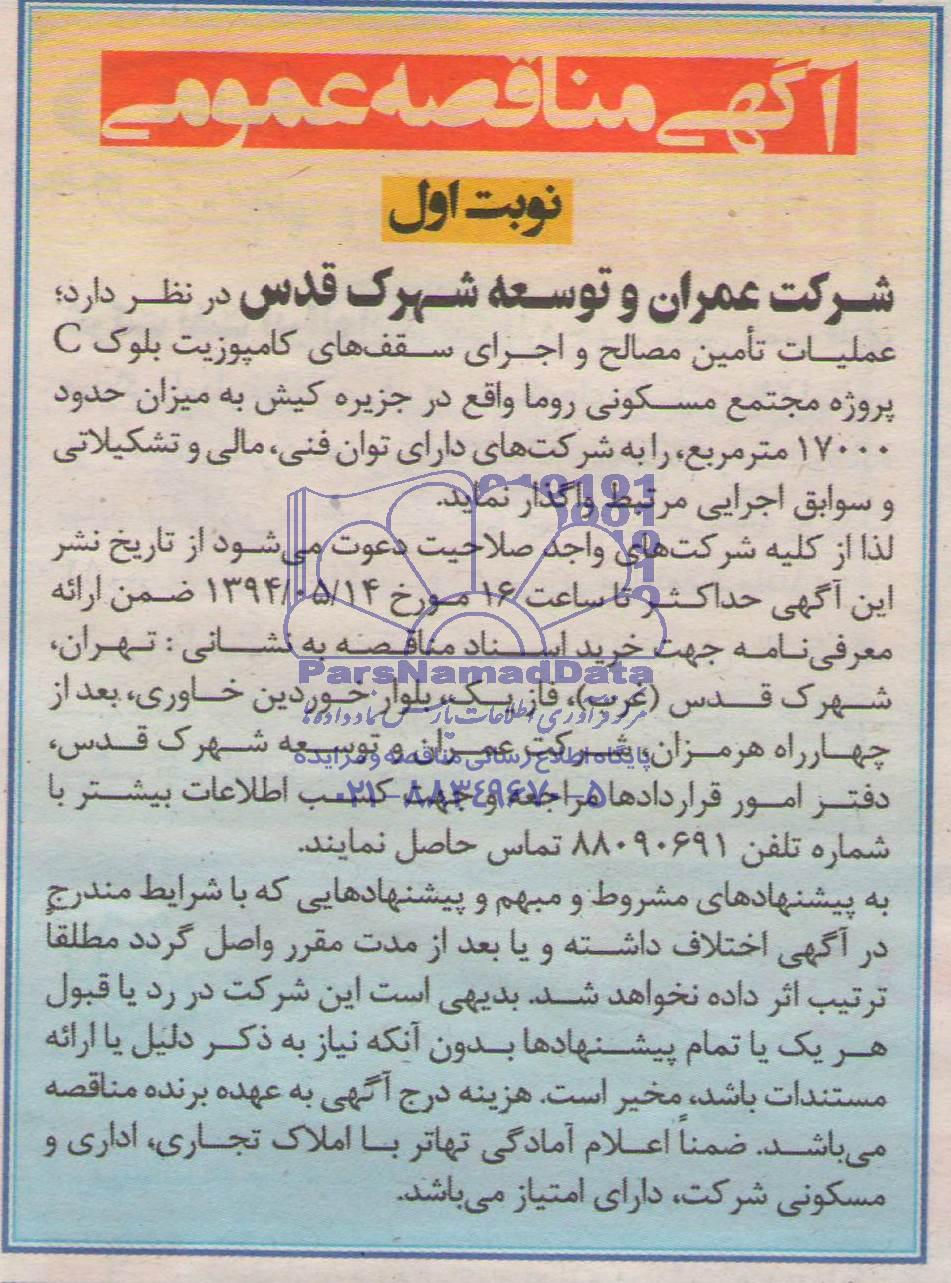 آگهی مناقصه عمومی
نوبت اول
شرکت عمران و توسعه شهرک قدس در نظر دارد؛
عملیات تأمین مصالح و اجرای سقف‌های کامپوزیت بلوک C
پروژه مجتمع مسکونی روما واقع در جزیره کیش به میزان حدود
۱۷۰۰۰ مترمربع، را به شرکت‌های دارای توان فنی، مالی و تشکیلاتی
و سوابق اجرایی مرتبط واگذار نماید.
لذا از کلیه شرکت‌های واجد صلاحیت دعوت می‌شود از تاریخ نشر
این آگهی حداکثر تا ساعت ۱۶ مورخ ۱۳۹۴/۰۵/۱۴ ضمن ارائه
معرفی‌نامه جهت خرید اسناد مناقصه به نشانی : تهران،
شهرک قدس (غرب)، فاز یک، بلوار خوردین خاوری، بعد از
چهارراه هرمزان، شرکت عمران و توسعه شهرک قدس،
دفتر امور قراردادها مراجعه و جهت کسب اطلاعات بیشتر با
شماره تلفن ۸۸۰۹۰۶۹۱ تماس حاصل نمایند.
به پیشنهادهای مشروط و مبهم و پیشنهادهایی که با شرایط مندرج
در آگهی اختلاف داشته و یا بعد از مدت مقرر واصل گردد مطلقاً
ترتیب اثر داده نخواهد شد. بدیهی است این شرکت در رد یا قبول
هر یک یا تمام پیشنهادها بدون آنکه نیاز به ذکر دلیل یا ارائه
مستندات باشد، مخیر است. هزینه درج آگهی به عهده برنده مناقصه
می‌باشد. ضمناً اعلام آمادگی تهاتر با املاک تجاری، اداری و
مسکونی شرکت، دارای امتیاز می‌باشد.
ParsNamadData
پایگاه اطلاع رسانی مناقصه و مزایده
۰۲۱-۸۸۳۴۹۶۷۰-۵